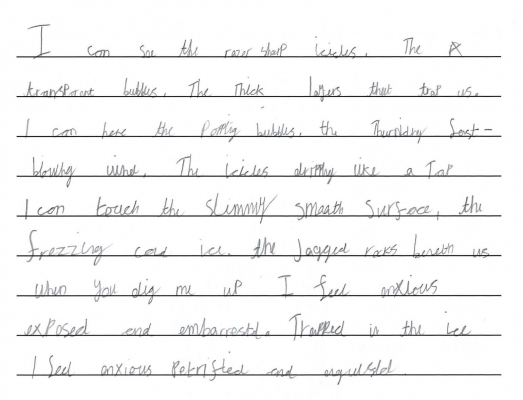 I can see the razer sharp icicles. The
transparent bubbles. The Thick layers that trap us.
I can here the Poping bubbles. the Fast-
blowing wind. The icicles like a Tap
I can touch the slimmy smooth surface, the
frezzing cold ice. the Jagged roks beneth us
when you dig me up I feel anxious
exposed and embarresstd. Trapped in the ice
I feel anxious petrified and